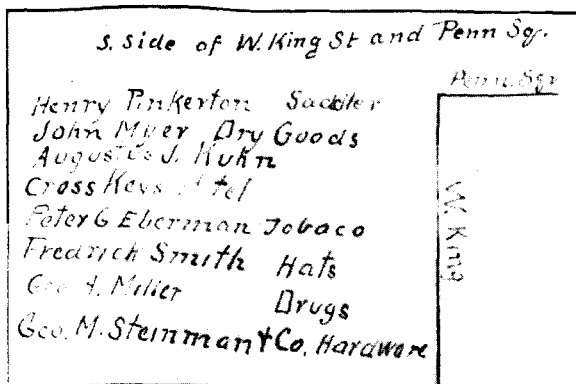 S. side of W. King St and Penn Sq.
Penn. Sqr
Henry Pinkerton Saddler
John Myer Dry Goods
Augustus J. Kuhn
Cross Keys Hotel
Peter G Eberman Tobaco
W. King
Fredrick Smith Hats
Miller Drugs
Geo. M. Steinman & Co. Hardware